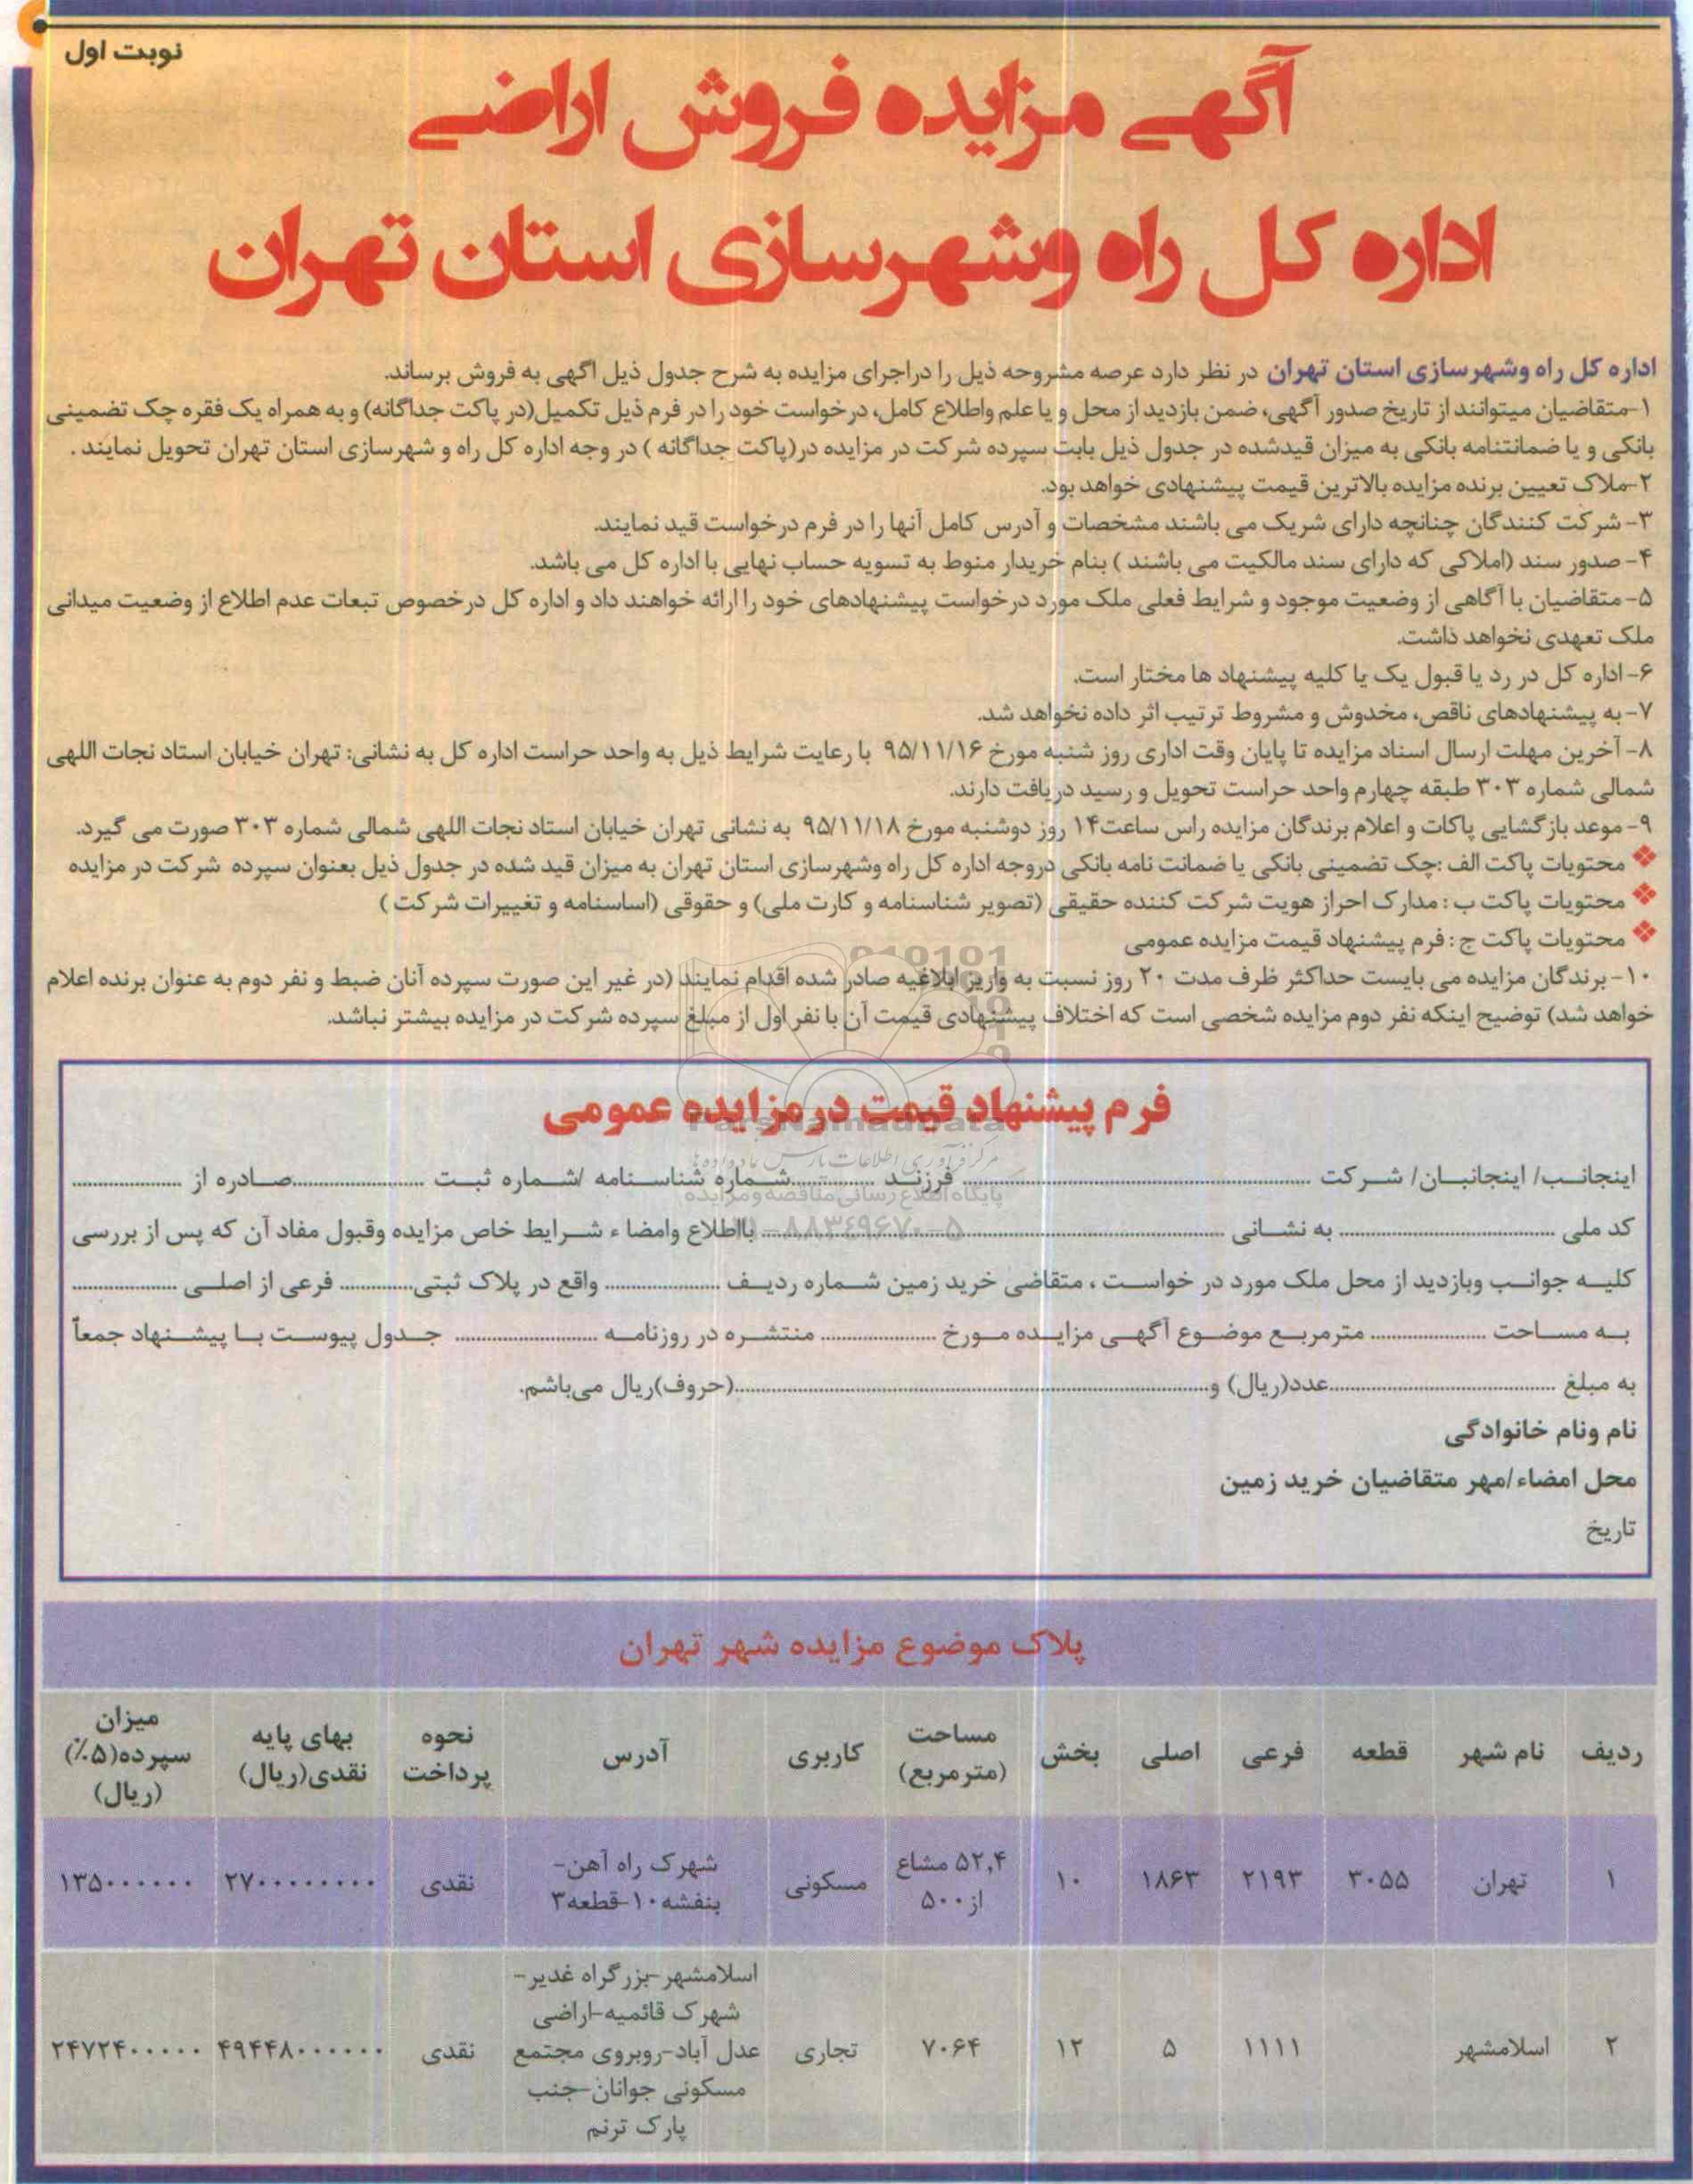 نوبت اول
آگهی مزایده فروش اراضی
اداره کل راه وشهرسازی استان تهران
اداره کل راه وشهرسازی استان تهران در نظر دارد عرصه مشروحه ذیل را دراجرای مزایده به شرح جدول ذیل آگهی به فروش برساند.
۱-متقاضیان میتوانند از تاریخ صدور آگهی، ضمن بازدید از محل و یا علم واطلاع کامل، درخواست خود را در فرم ذیل تکمیل(در پاکت جداگانه) و به همراه یک فقره چک تضمینی
بانکی و یا ضمانتنامه بانکی به میزان قیدشده در جدول ذیل بابت سپرده شرکت در مزایده در(پاکت جداگانه ) در وجه اداره کل راه و شهرسازی استان تهران تحویل نمایند .
۲-ملاک تعیین برنده مزایده بالاترین قیمت پیشنهادی خواهد بود.
۳- شرکت کنندگان چنانچه دارای شریک می باشند مشخصات و آدرس کامل آنها را در فرم درخواست قید نمایند.
۴- صدور سند (املاکی که دارای سند مالکیت می باشند ) بنام خریدار منوط به تسویه حساب نهایی با اداره کل می باشد.
۵- متقاضیان با آگاهی از وضعیت موجود و شرایط فعلی ملک مورد درخواست پیشنهادهای خود را ارائه خواهند داد و اداره کل درخصوص تبعات عدم اطلاع از وضعیت میدانی
ملک تعهدی نخواهد داشت.
۶- اداره کل در رد یا قبول یک یا کلیه پیشنهاد ها مختار است.
۷- به پیشنهادهای ناقص، مخدوش و مشروط ترتیب اثر داده نخواهد شد.
۸- آخرین مهلت ارسال اسناد مزایده تا پایان وقت اداری روز شنبه مورخ ۹۵/۱۱/۱۶ با رعایت شرایط ذیل به واحد حراست اداره کل به نشانی: تهران خیابان استاد نجات اللهی
شمالی شماره ۳۰۳ طبقه چهارم واحد حراست تحویل و رسید دریافت دارند.
۹- موعد بازگشایی پاکات و اعلام برندگان مزایده راس ساعت۱۴ روز دوشنبه مورخ ۹۵/۱۱/۱۸ به نشانی تهران خیابان استاد نجات اللهی شمالی شماره ۳۰۳ صورت می گیرد.
❖ محتویات پاکت الف :چک تضمینی بانکی یا ضمانت نامه بانکی دروجه اداره کل راه وشهرسازی استان تهران به میزان قید شده در جدول ذیل بعنوان سپرده شرکت در مزایده
❖ محتویات پاکت ب : مدارک احراز هویت شرکت کننده حقیقی (تصویر شناسنامه و کارت ملی) و حقوقی (اساسنامه و تغییرات شرکت )
❖ محتویات پاکت ج : فرم پیشنهاد قیمت مزایده عمومی
۱۰- برندگان مزایده می بایست حداکثر ظرف مدت ۲۰ روز نسبت به واریز ابلاغیه صادر شده اقدام نمایند (در غیر این صورت سپرده آنان ضبط و نفر دوم به عنوان برنده اعلام
خواهد شد) توضیح اینکه نفر دوم مزایده شخصی است که اختلاف پیشنهادی قیمت آن با نفر اول از مبلغ سپرده شرکت در مزایده بیشتر نباشد.
فرم پیشنهاد قیمت در مزایده عمومی
ParsNamadData
پایگاه اطلاع رسانی مناقصه و مزایده
اینجانب/ اینجانبان/ شرکت .......... فرزند ..........شماره شناسنامه /شماره ثبت ..........صادره از ..........
کد ملی .......... به نشانی .......... بااطلاع وامضا ء شرایط خاص مزایده وقبول مفاد آن که پس از بررسی
کلیه جوانب وبازدید از محل ملک مورد در خواست ، متقاضی خرید زمین شماره ردیف .......... واقع در پلاک ثبتی.......... فرعی از اصلی ..........
به مساحت .......... مترمربع موضوع آگهی مزایده مورخ .......... منتشره در روزنامه .......... جدول پیوست با پیشنهاد جمعاً
به مبلغ ..........عدد(ریال) و..........(حروف)ریال می‌باشم.
نام ونام خانوادگی
محل امضاء/مهر متقاضیان خرید زمین
تاریخ
پلاک موضوع مزایده شهر تهران
ردیف نام شهر قطعه فرعی اصلی بخش مساحت (مترمربع) کاربری آدرس نحوه پرداخت بهای پایه نقدی(ریال) میزان سپرده(۵٪) (ریال)
۱ تهران ۳۰۵۵ ۲۱۹۳ ۱۸۶۳ ۱۰ ۵۲,۴ مشاع از۵۰۰ مسکونی شهرک راه آهن- بنفشه۱۰-قطعه۳ نقدی ۲۷۰۰۰۰۰۰۰۰ ۱۳۵۰۰۰۰۰۰
۲ اسلامشهر ۱۱۱۱ ۵ ۱۲ ۷۰۶۴ تجاری اسلامشهر-بزرگراه غدیر- شهرک قائمیه-اراضی عدل آباد-روبروی مجتمع مسکونی جوانان-جنب پارک ترنم نقدی ۴۹۴۴۸۰۰۰۰۰۰ ۲۴۷۲۴۰۰۰۰۰